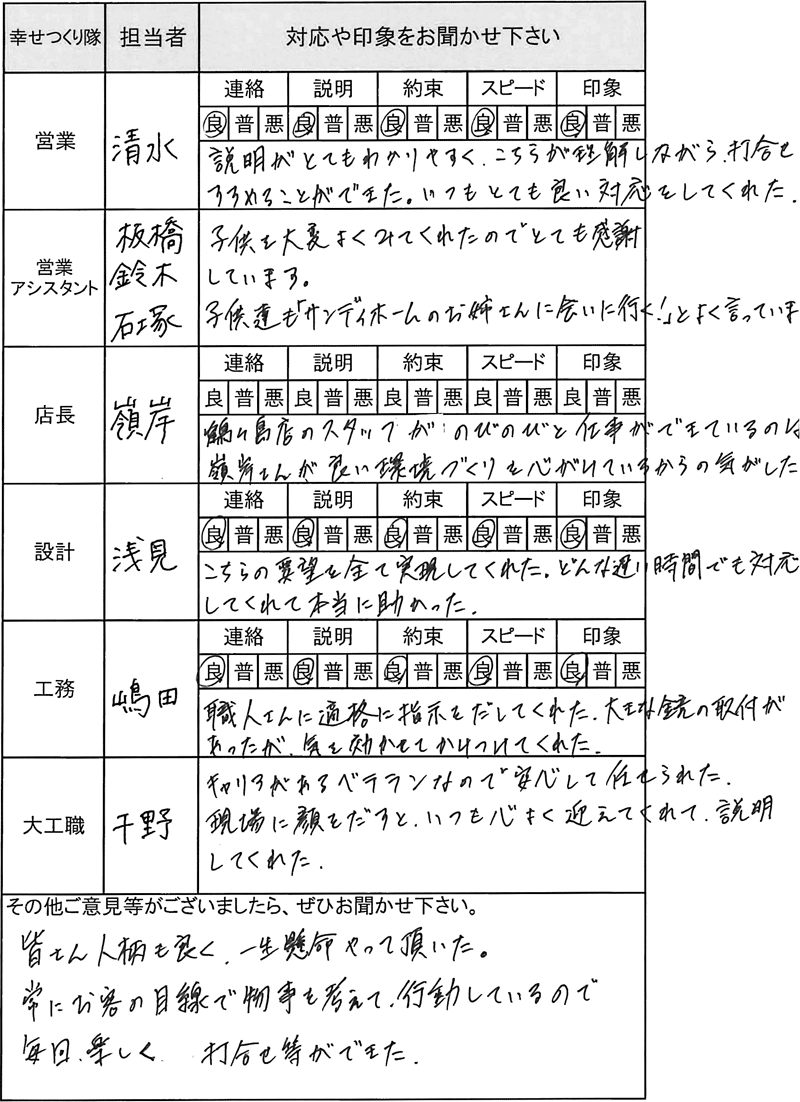 幸せつくり隊 担当者 対応や印象をお聞かせ下さい
営業 清水
連絡 説明 約束 スピード 印象
良 普 悪 良 普 悪 良 普 悪 良 普 悪 良 普 悪
説明がとてもわかりやすく、こちらが理解しながら、打合せ
すすめることができた。いつもとても良い対応をしてくれた.
営業
アシスタント
板橋
鈴木
石塚
子供を大変よくみてくれたのでとても感謝
しています。
子供達も「サンディホームのお姉さんに会いに行く!」とよく言っていま
店長 嶺岸
連絡 説明 約束 スピード 印象
良 普 悪 良 普 悪 良 普 悪 良 普 悪 良 普 悪
鶴ヶ島店のスタッフが のびのびと仕事ができているのは
嶺岸さんが良い環境づくりを心がけているからの気がした
設計 浅見
連絡 説明 約束 スピード 印象
良 普 悪 良 普 悪 良 普 悪 良 普 悪 良 普 悪
こちらの要望を全て実現してくれた。どんな遅い時間でも対応
してくれて本当に助かった.
工務 嶋田
連絡 説明 約束 スピード 印象
良 普 悪 良 普 悪 良 普 悪 良 普 悪 良 普 悪
職人さんに適格に指示をだしてくれた. 大きな鏡の取付が
あったが、気を効かせてかけつけてくれた.
大工職 千野
キャリアがあるベテランなので安心して任せられた.
現場に顔をだすと、いつも心よく迎えてくれて、説明
してくれた.
その他ご意見等がございましたら、ぜひお聞かせ下さい。
皆さん人柄も良く、一生懸命やって頂いた。
常にお客の目線で物事を考えて、行動しているので
毎回、楽しく 打合せ等ができた.